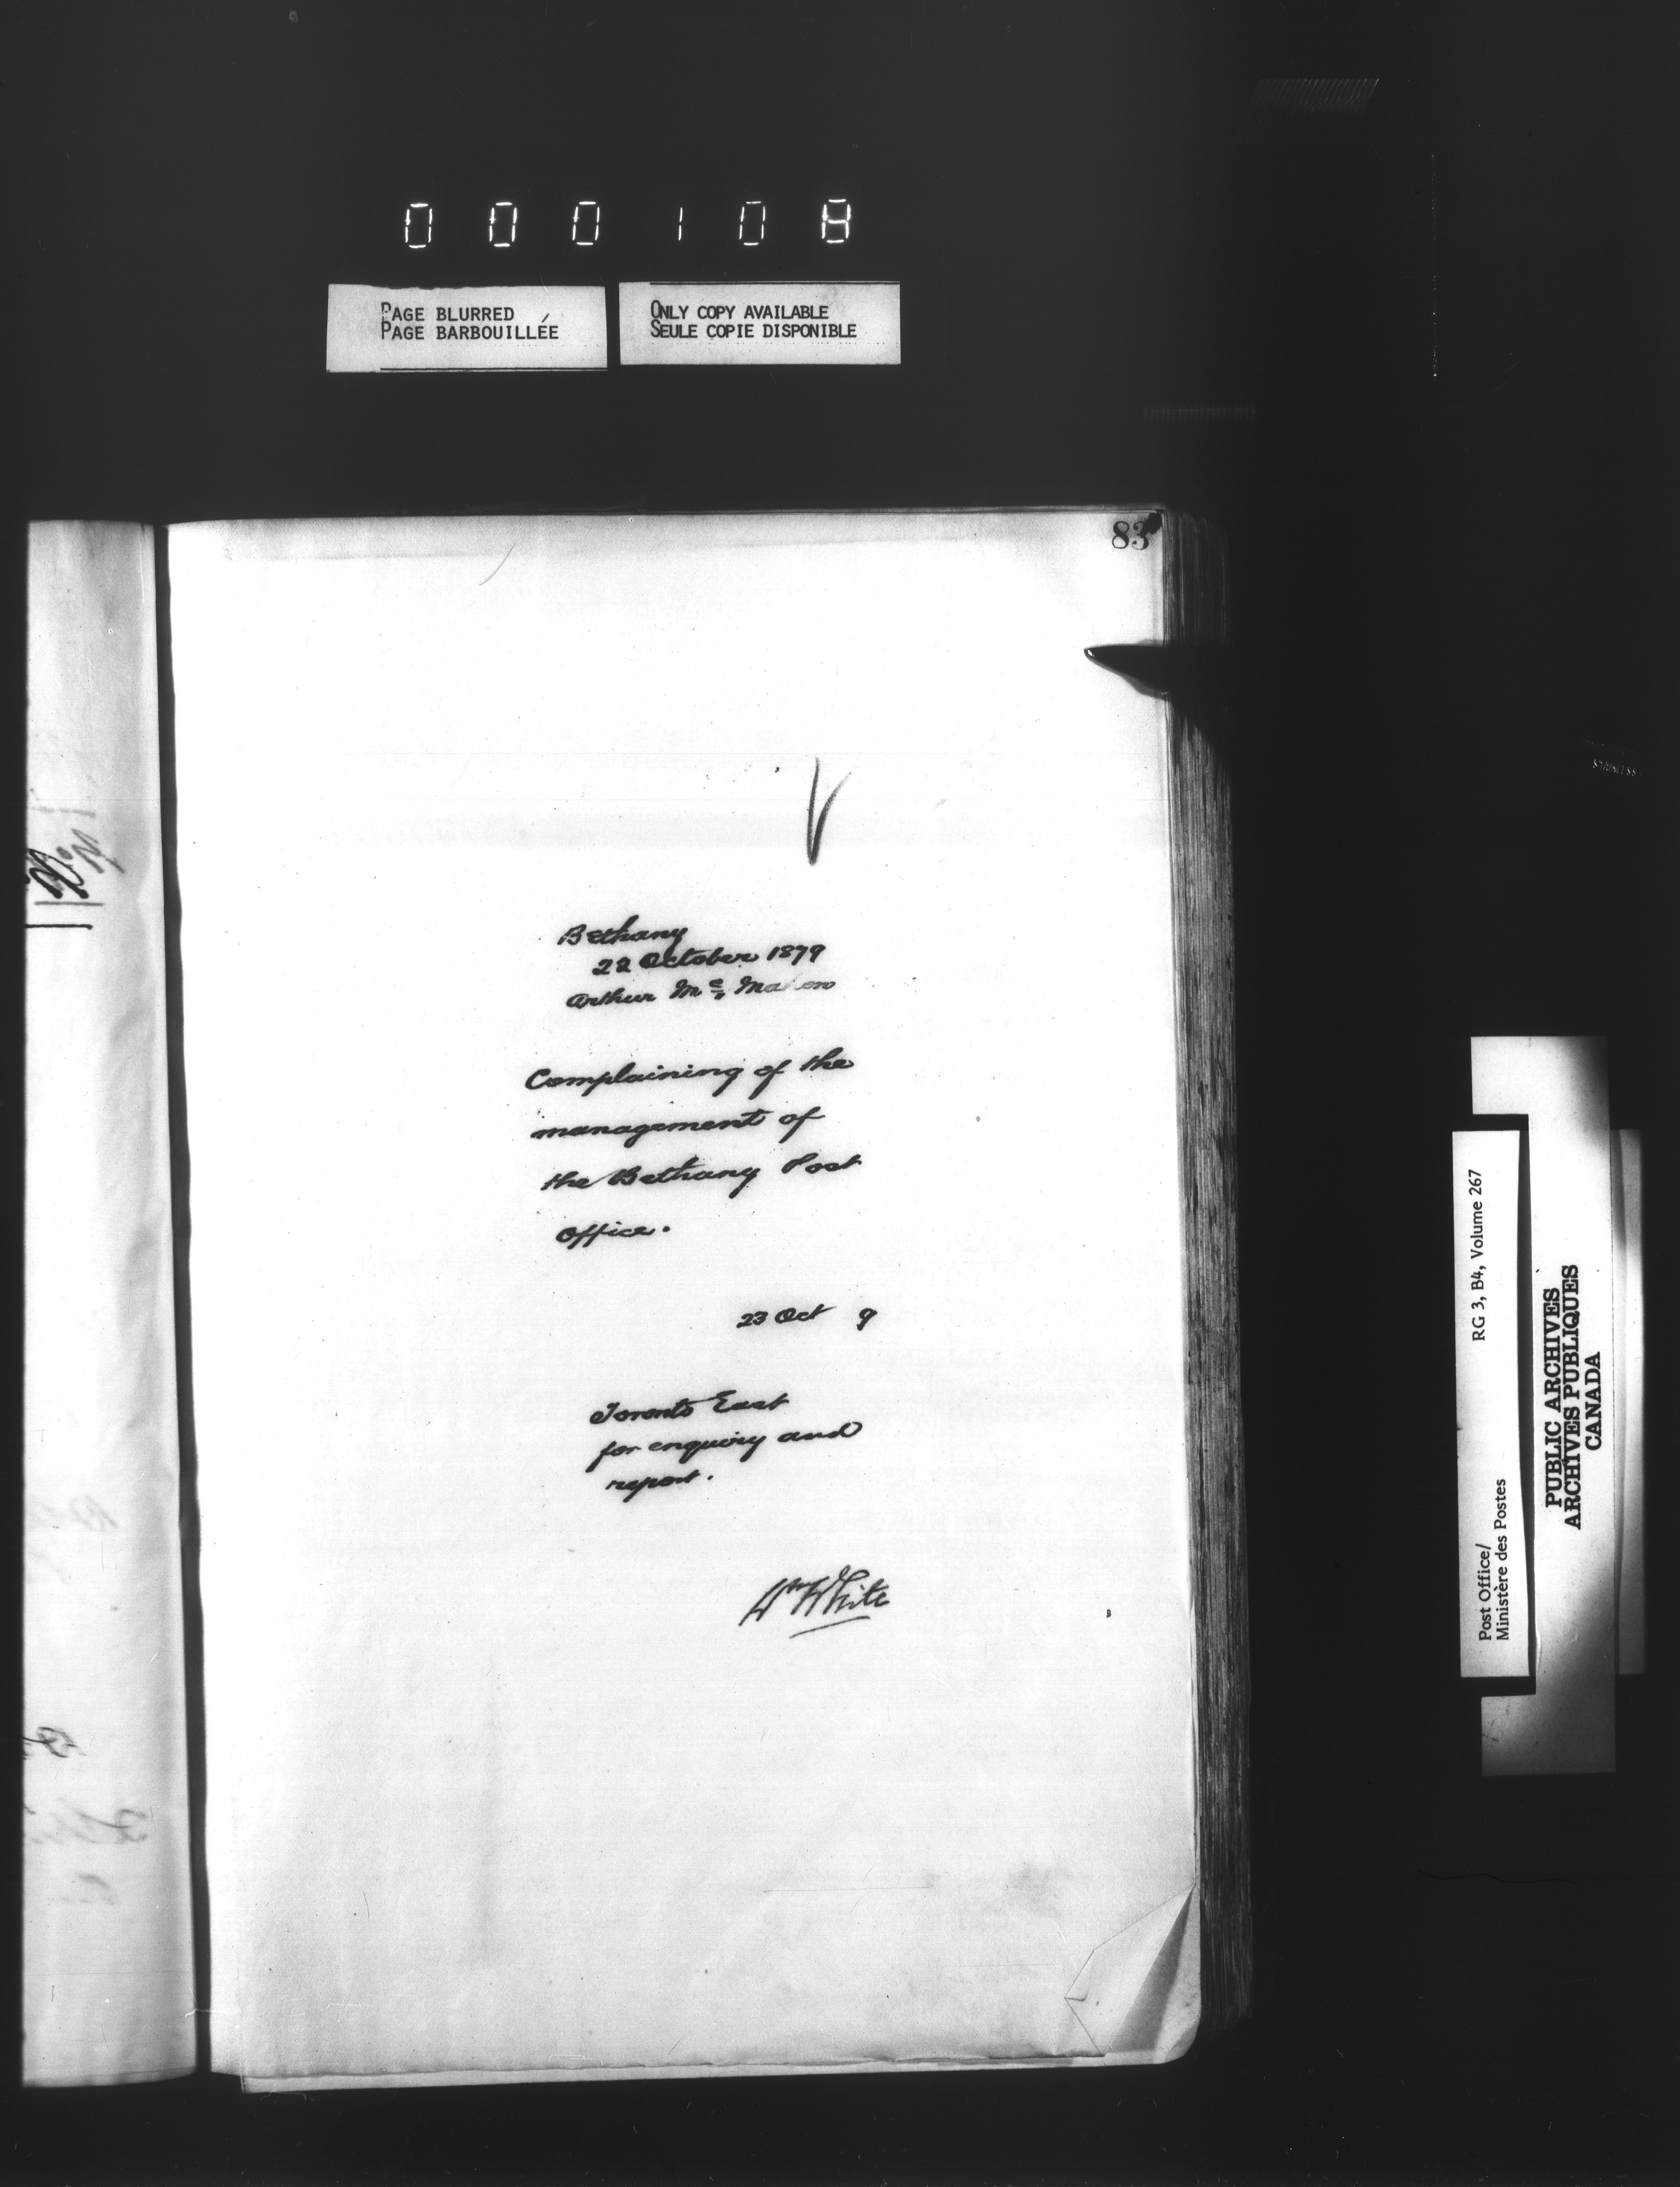 000108
PAGE BLURRED
PAGE BARBOUILLÉE
ONLY COPY AVAILABLE
SEULE COPIE DISPONIBLE
83
Bethany
22 October 1879
Arthur Mc
Complaining of the
management of
the Bethany Post
Office.
23 Oct 9
Toronto East
for enquiry and
report.
Wm White
Post Office/
Ministère des Postes
RG 3, B4, Volume 267
PUBLIC ARCHIVES
ARCHIVES PUBLIQUES
CANADA